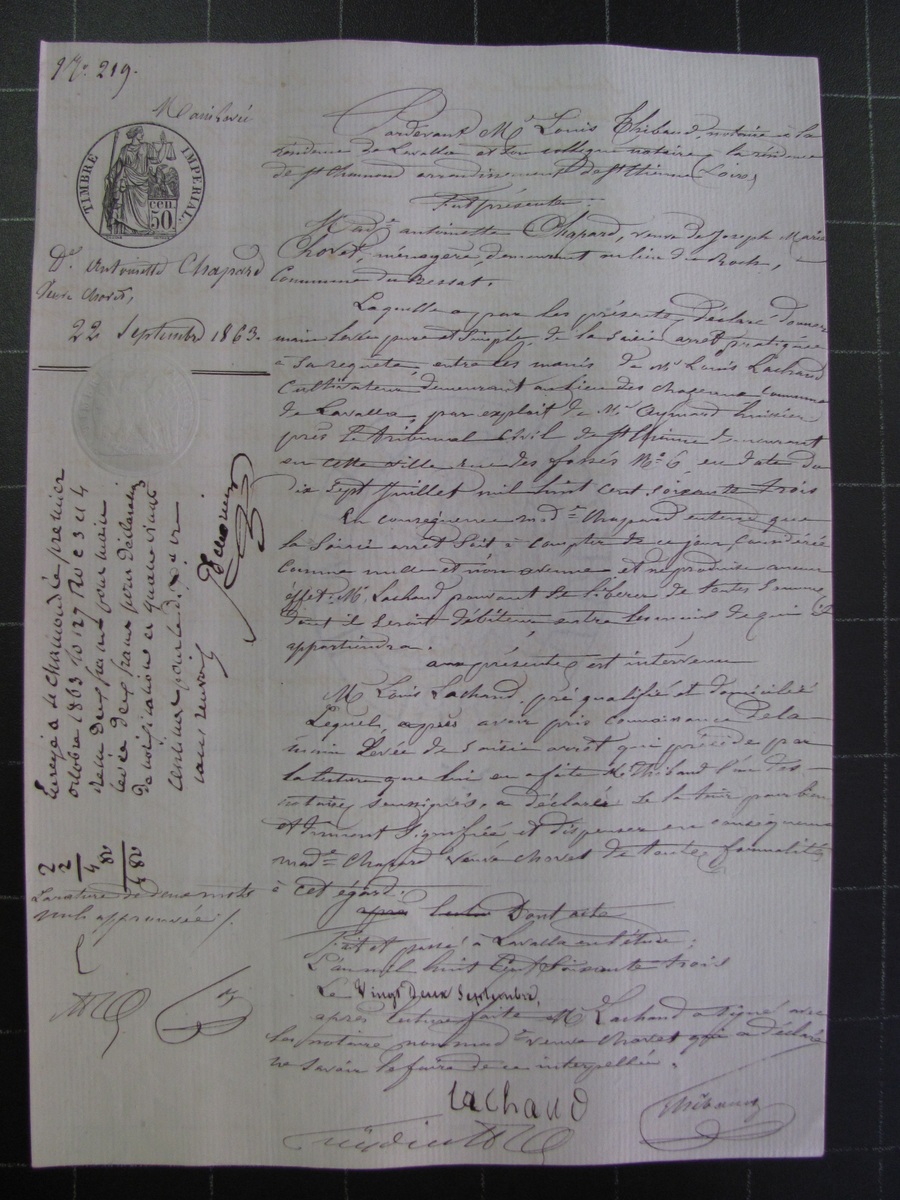 No. 219.
Mainlevée
TIMBRE IMPERIAL.
cen. 50
De. Antoinette Chapard
Veuve Chovet,
22 Septembre 1863.
Pardevant Me Louis Thibaud, notaire à la
résidence de Lavalla et son collègue notaire à la résidence
de St Chamond arrondissement de St Etienne (Loire)
Fut présente :
Made. antoinette Chapard, veuve de Joseph Marie
Chovet, ménagère, demeurant au lieu du
Commune du Bessat.
Laquelle a, par les présentes, déclaré donner
main levée pure et simple, de la Saisie arrêt pratiquée
à sa requête, entre les mains de Mr. Louis Lachaud
Cultivateur demeurant au lieu des commune
de Lavalla, par exploit de Me Aymard huissier
près le tribunal Civil de St Etienne demeurant
en cette ville rue des fossés No. 6, en date du
dix Sept Juillet mil huit cent soixante trois
En conséquence made. Chapard entend que
la Saisie arrêt soit à compter de ce jour Considérée
Comme nulle et non avenue et ne produise aucun
effet. M. Lachaud pouvant se libérer de toutes sommes
dont il serait débiteur entre les mains de qui il
appartiendra.
aux présentes est intervenu
M. Louis Lachaud, pré qualifié et domicilié
Lequel, après avoir pris connaissance de la
main Levée de Saisie arrêt qui précède par
la lecture que lui en a faite Me Thibaud l'un des
notaires soussignés, a déclaré se la tenir pour bien
et dûment Signifiée et dispenser en conséquence
made. Chapard Veuve Chovet de toute formalité
à cet égard.
après lecture Dont acte
Fait et passé à Lavalla en l'étude,
L'an mil huit Cent Soixante trois
Le Vingt Deux Septembre,
après lecture faite M. Lachaud a signé avec
les notaires non made. veuve Chovet qui a déclaré
ne savoir le faire de ce interpellée.
Lachaud
Thibaud
Enregé à St Chamond le premier
octobre 1863 fo 127 Ro c 3 et 4
reçu deux francs pour main
levée deux francs pour déclaration
de et quatre vingts
centimes pour le
2
2
4
80
4 80
La rature de deux mots
nuls approuvée /.